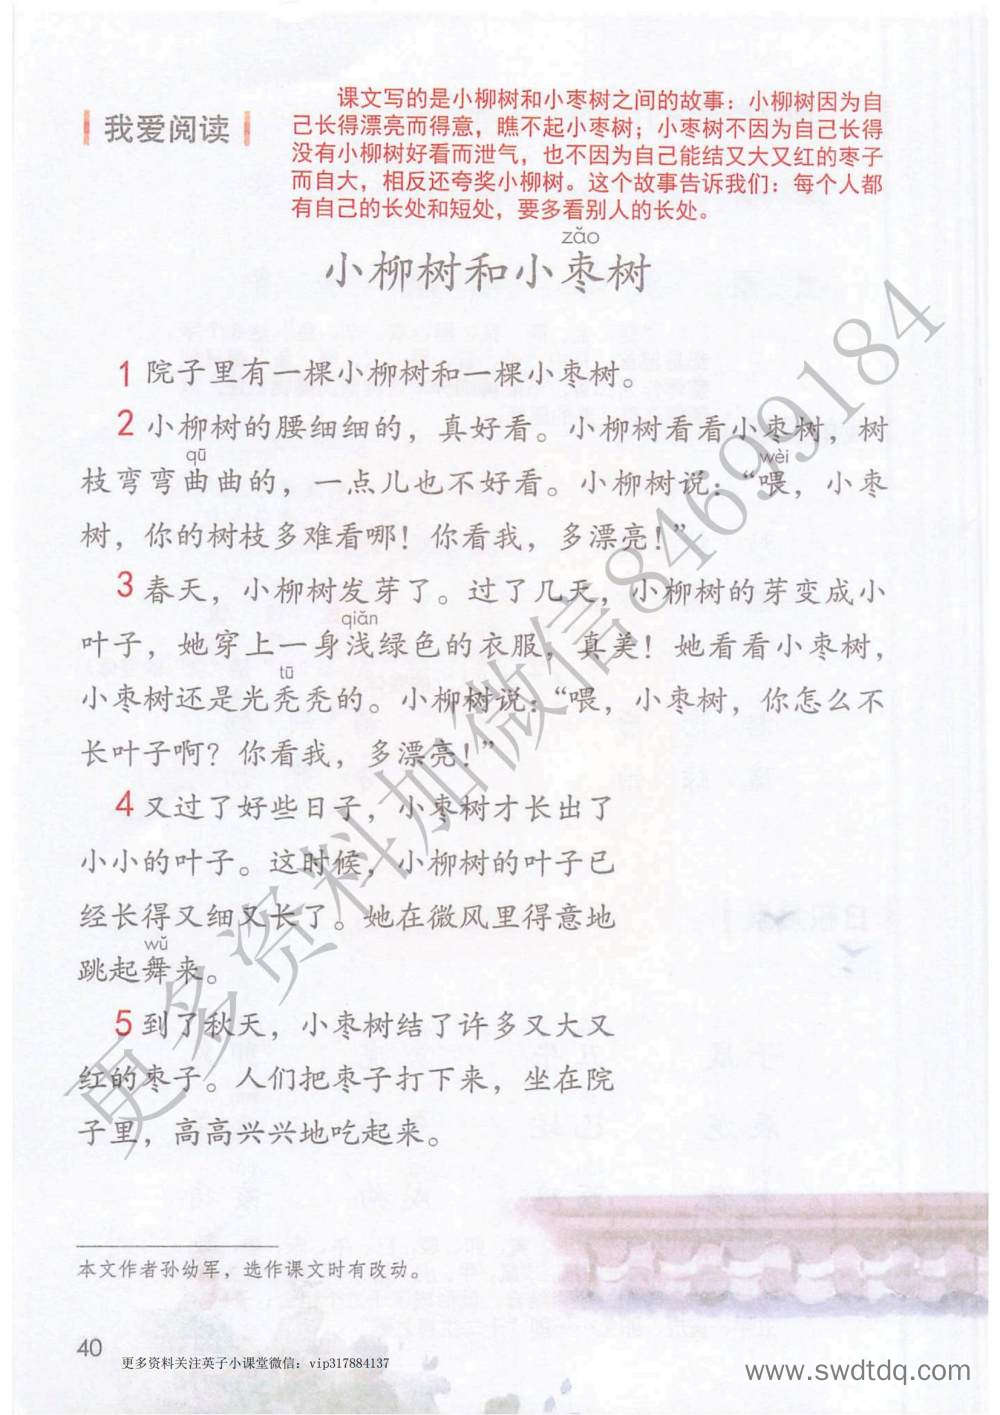 课文写的是小柳树和小枣树之间的故事：小柳树因为自
己长得漂亮而得意，瞧不起小枣树；小枣树不因为自己长得
没有小柳树好看而泄气，也不因为自己能结又大又红的枣子
而自大，相反还夸奖小柳树。这个故事告诉我们：每个人都
有自己的长处和短处，要多看别人的长处。
我爱阅读
zǎo
小柳树和小枣树
1 院子里有一棵小柳树和一棵小枣树。
2 小柳树的腰细细的，真好看。小柳树看看小枣树，树
qū wèi
枝弯弯曲曲的，一点儿也不好看。小柳树说：“喂，小枣
树，你的树枝多难看哪！你看我，多漂亮！”
3 春天，小柳树发芽了。过了几天，小柳树的芽变成小
qiǎn
叶子，她穿上一身浅绿色的衣服，真美！她看看小枣树，
tū
小枣树还是光秃秃的。小柳树说：“喂，小枣树，你怎么不
长叶子啊？你看我，多漂亮！”
4 又过了好些日子，小枣树才长出了
小小的叶子。这时候，小柳树的叶子已
经长得又细又长了。她在微风里得意地
wǔ
跳起舞来。
5 到了秋天，小枣树结了许多又大又
红的枣子。人们把枣子打下来，坐在院
子里，高高兴兴地吃起来。
本文作者孙幼军，选作课文时有改动。
40
更多资料关注英子小课堂微信：vip317884137
www.swdtdq.com
更多资料加微信84699184